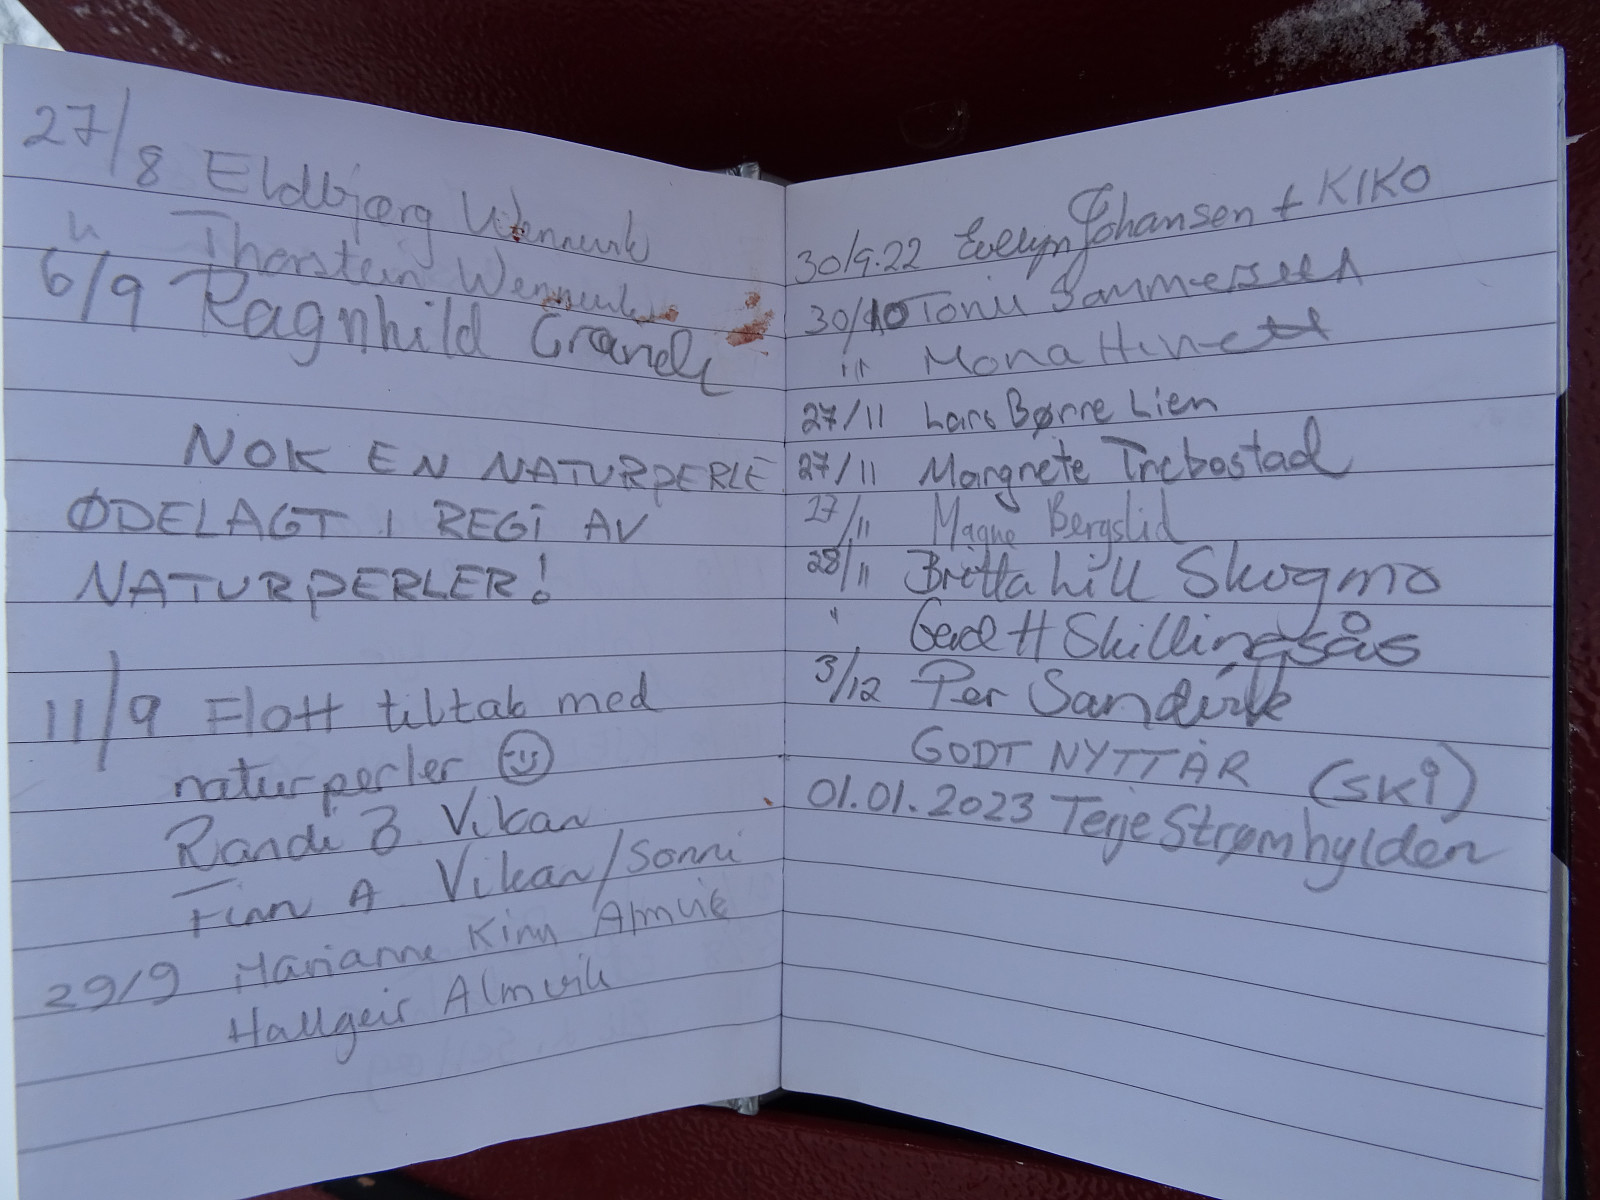 27/8 Eldbjørg Wennevik
" Thorstein Wennevik
6/9 Ragnhild
NOK EN NATURPERLE
ØDELAGT I REGI AV
NATURPERLER!
11/9 Flott tiltak med
naturperler
Randi B Vikan
Finn A Vikan/Sonni
29/9 Marianne Kinn Almvik
Hallgeir Almvik
30/9.22 Evelyn Johansen + KIKO
30/10
" Mona
27/11 Lars Børre Lien
27/11 Margrete Trebostad
27/11 Magne Bergslid
28/11 Britta Lill Skogmo
" Gerd H Skillingsås
3/12 Per Sandvik
GODT NYTTÅR (SKI)
01.01.2023 Terje Strømhylden